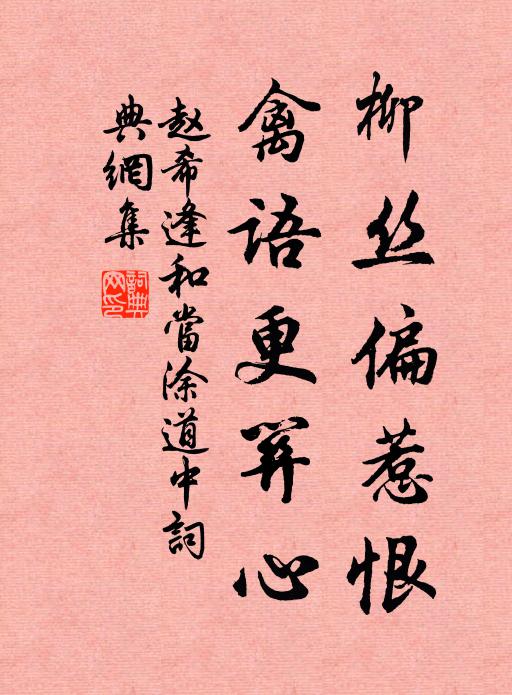 柳丝偏惹恨
禽语更羿心
赵希逢和當涂道中詞
典網集
詞典
网印